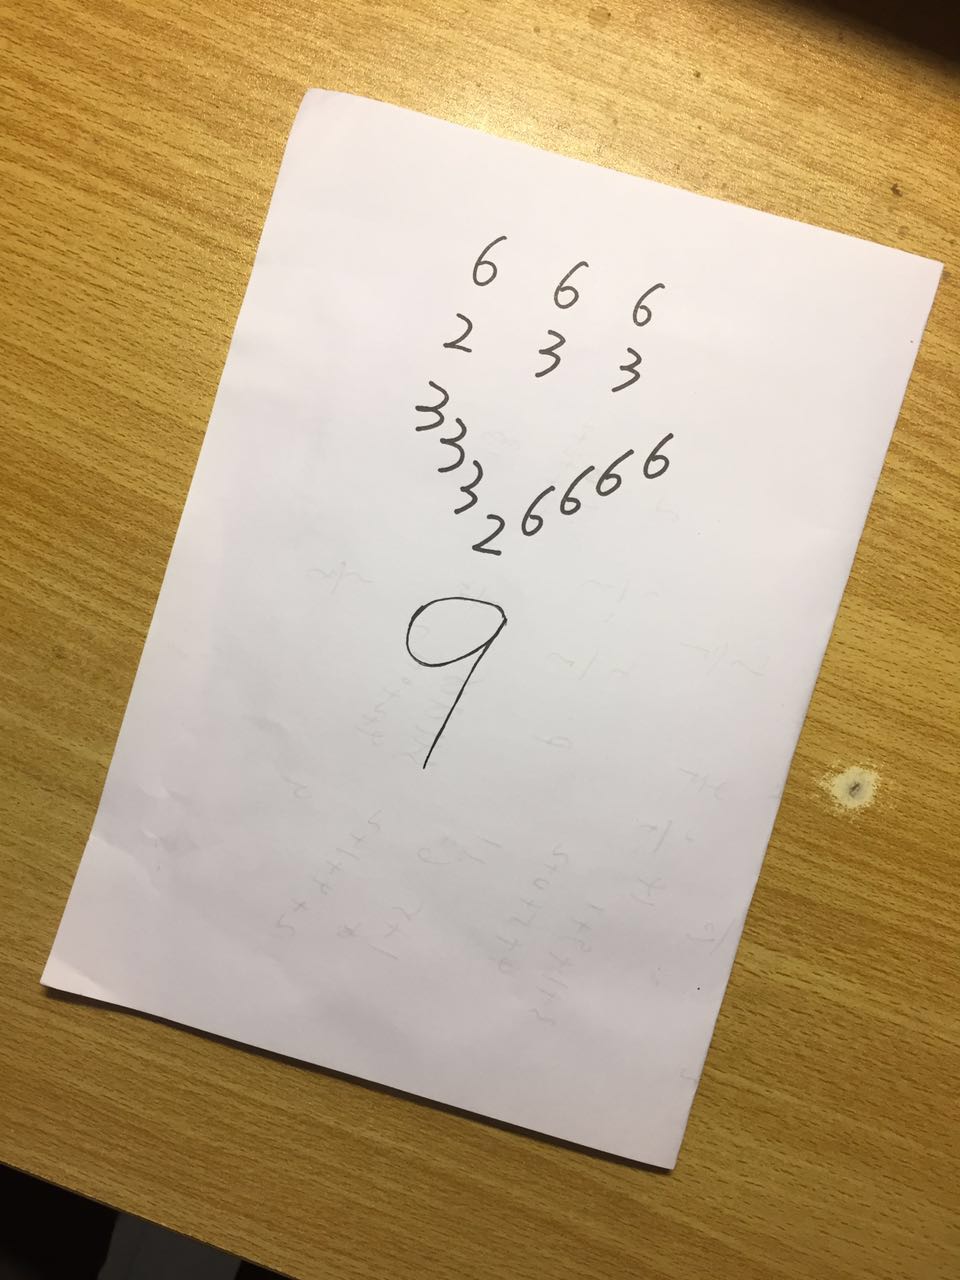 6 6 6
2 3 3
3 3 3 2 6 6 6 6
9